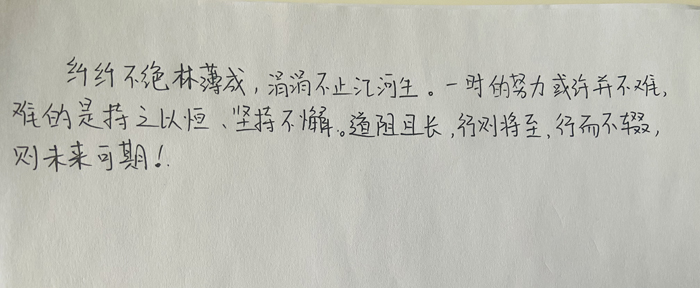 纤纤不绝林薄成，涓涓不止江河生。一时的努力或许并不难，
难的是持之以恒、坚持不懈。道阻且长，行则将至，行而不辍，
则未来可期！